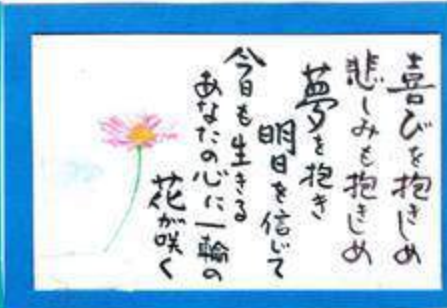 喜びを抱きしめ
悲しみも抱きしめ
夢を抱き
明日を信じて
今日も生きる
あなたの心に一輪の
花が咲く